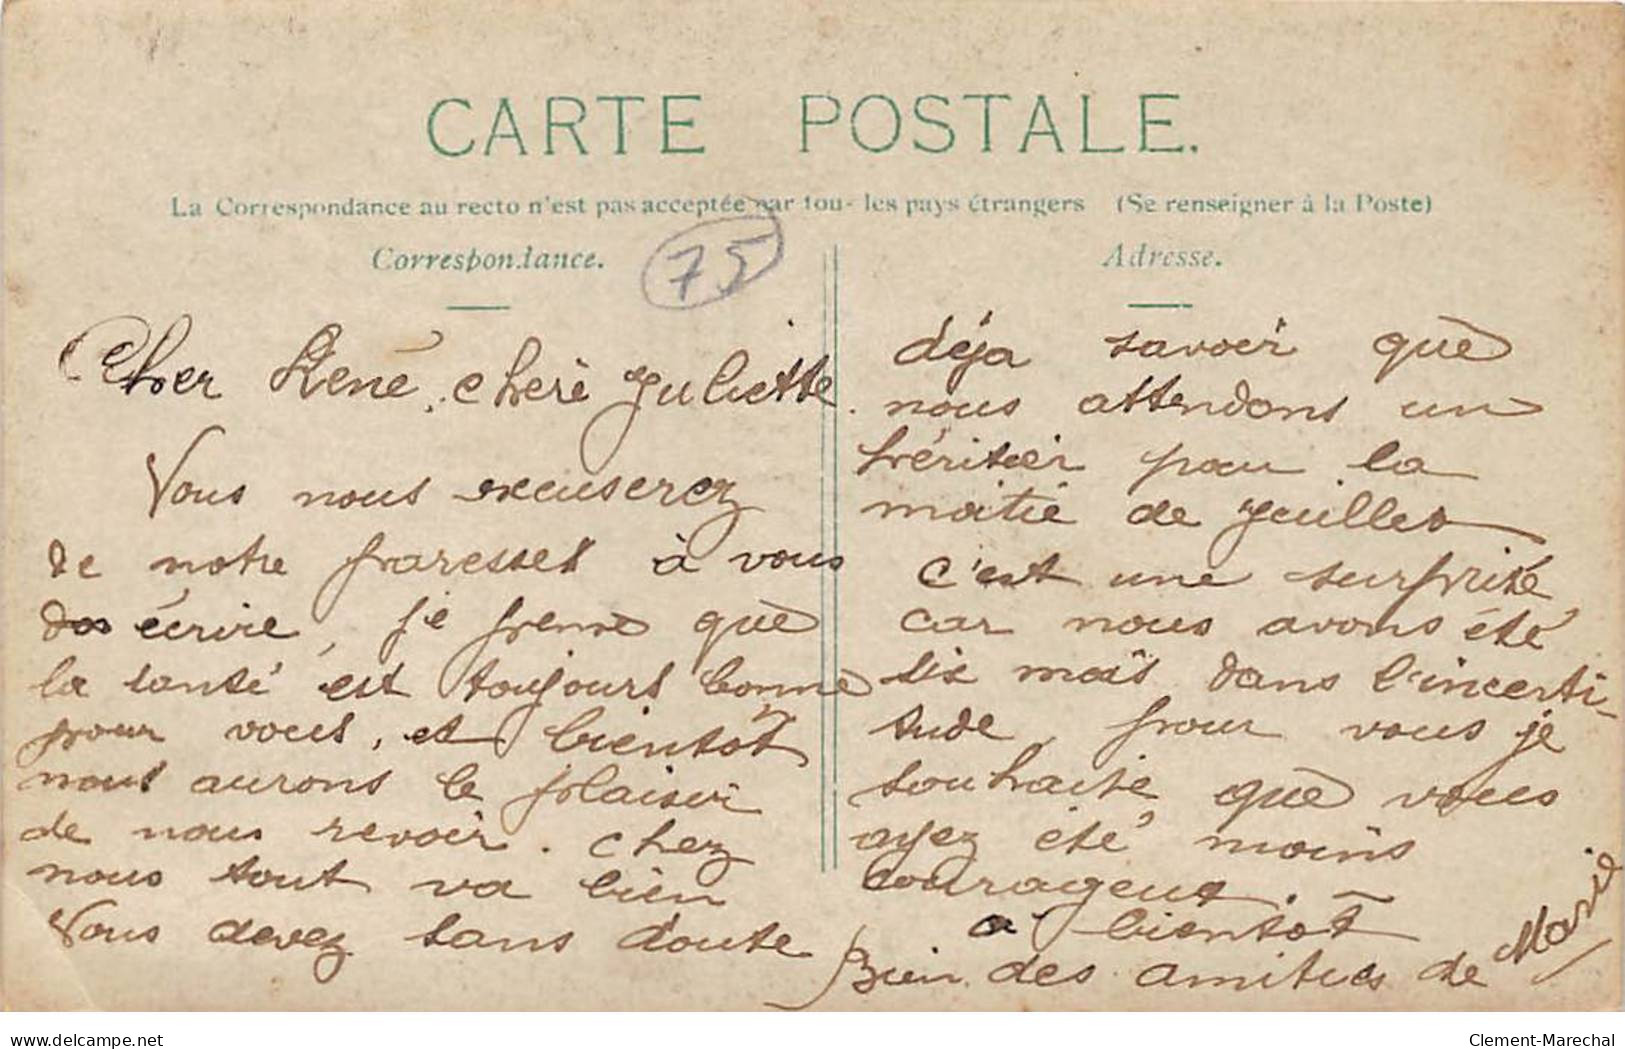 CARTE POSTALE.
La Correspondance au recto n'est pas acceptée par tou- les pays étrangers (Se renseigner à la Poste)
Correspondance.
75
Cher Réné, cherè Juliette.
Vous nous excuserez
de notre paresses à vous
écrire, je pense que
la santé est toujours bonne
pour vous, et bientôt
nous aurons le plaisir
de nous revoir. Chez
nous tout va bien
Vous devez sans doute
Adresse.
déja savoir que
nous attendons un
héritier pour la
moitié de Juillet
c'est une surprise
car nous avons été
six mois dans l'incerti-
tude, pour vous je
souhaite que vous
ayez été moins
courageux.
à bientôt
Bien des amitiés de Marie
delcampe.net
Clement-Marechal